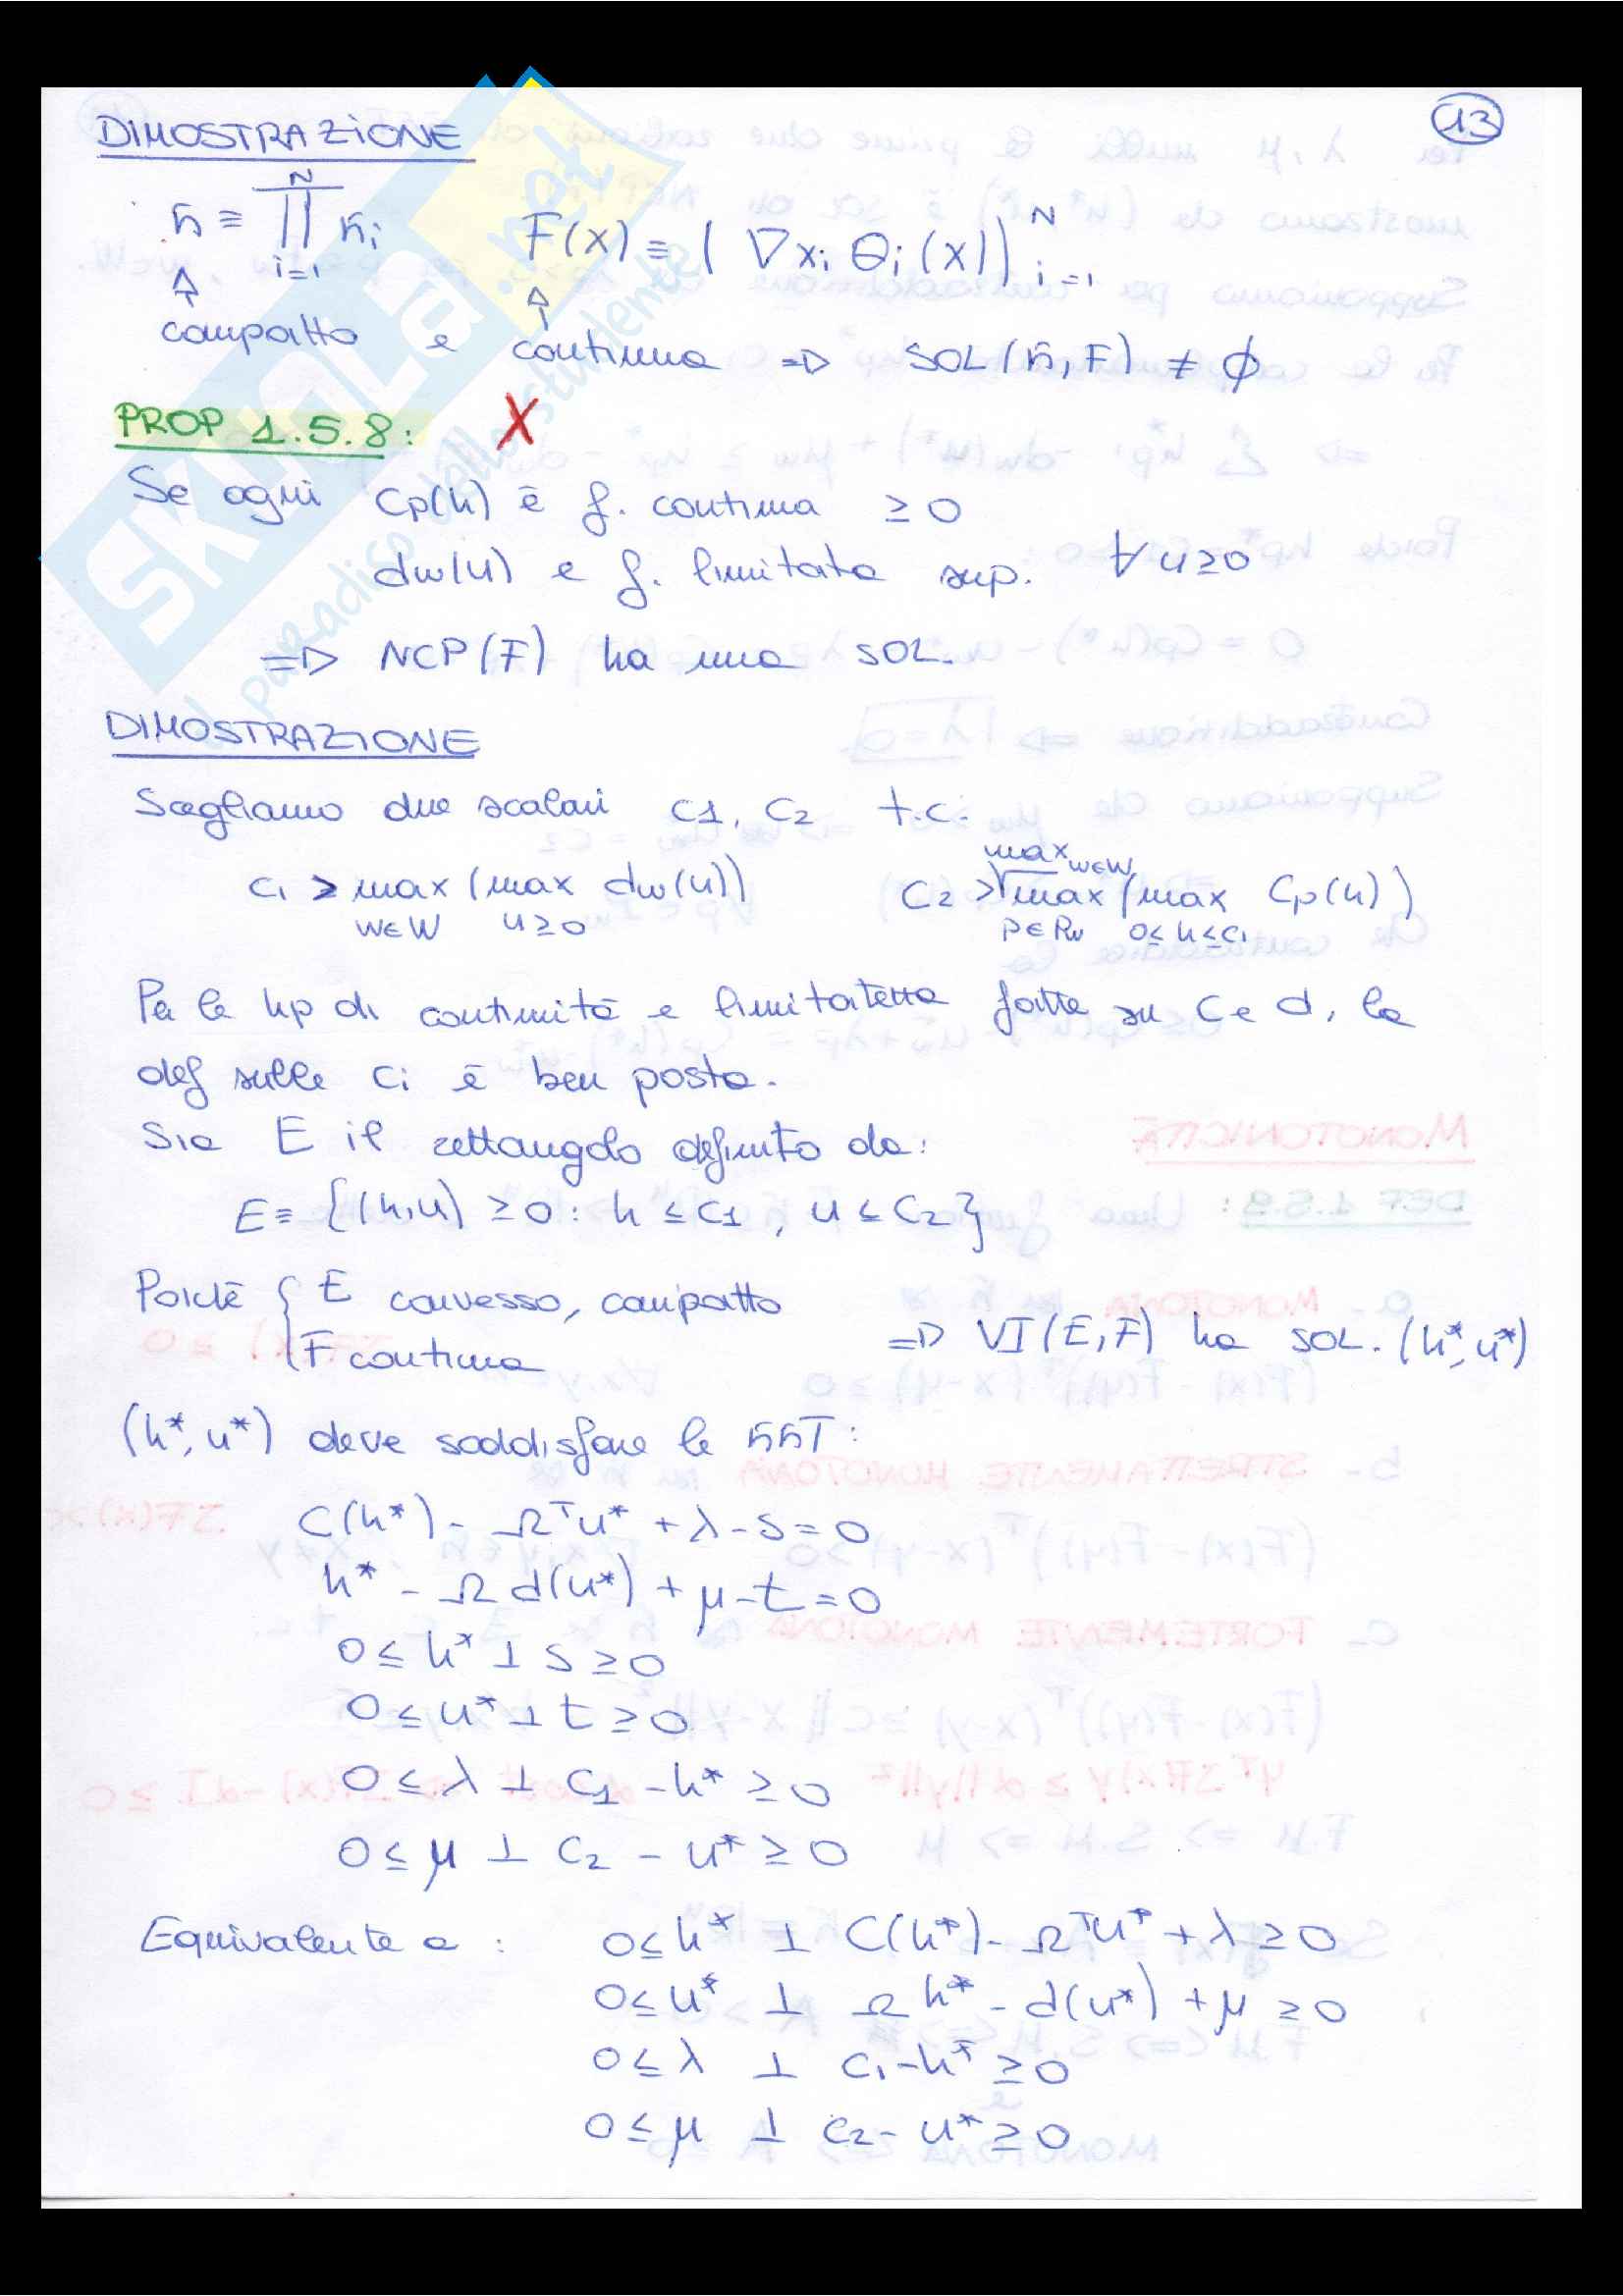 13
DIMOSTRAZIONE
K ≡ ∏ᵢ₌₁ᴺ Kᵢ    F(x) ≡ (∇xᵢ θᵢ(x))ᴺᵢ₌₁
compatto e continua ⇒ SOL(K, F) ≠ ∅
PROP 1.5.8: X
Se ogni Cp(h) è f. continua ≥ 0
dw(u) e f. limitata sup. ∀ u ≥ 0
⇒ NCP(F) ha una SOL.
DIMOSTRAZIONE
Scegliamo due scalari C1, C2 t.c.
C1 > max w∈W (max u≥0 dw(u))    C2 > max w∈W max p∈Pw (max 0≤h≤C1 Cp(h))
Per le hp di continuità e limitatezza fatte su C e d, la
def sulle Ci è ben posta.
Sia E il rettangolo definito da:
E ≡ {(h,u) ≥ 0 : h ≤ C1 , u ≤ C2}
Poichè { E convesso, compatto
F continua ⇒ VI(E,F) ha SOL. (h*, u*)
(h*, u*) deve soddisfare le KKT:
C(h*) - Ωᵀu* + λ - s = 0
h* - Ω d(u*) + μ - t = 0
0 ≤ h* ⊥ s ≥ 0
0 ≤ u* ⊥ t ≥ 0
0 ≤ λ ⊥ C1 - h* ≥ 0
0 ≤ μ ⊥ C2 - u* ≥ 0
Equivalente a : 0 ≤ h* ⊥ C(h*) - Ωᵀu* + λ ≥ 0
0 ≤ u* ⊥ Ω h* - d(u*) + μ ≥ 0
0 ≤ λ ⊥ C1 - h* ≥ 0
0 ≤ μ ⊥ C2 - u* ≥ 0
SKUOLA.net
il paradiso dello studente